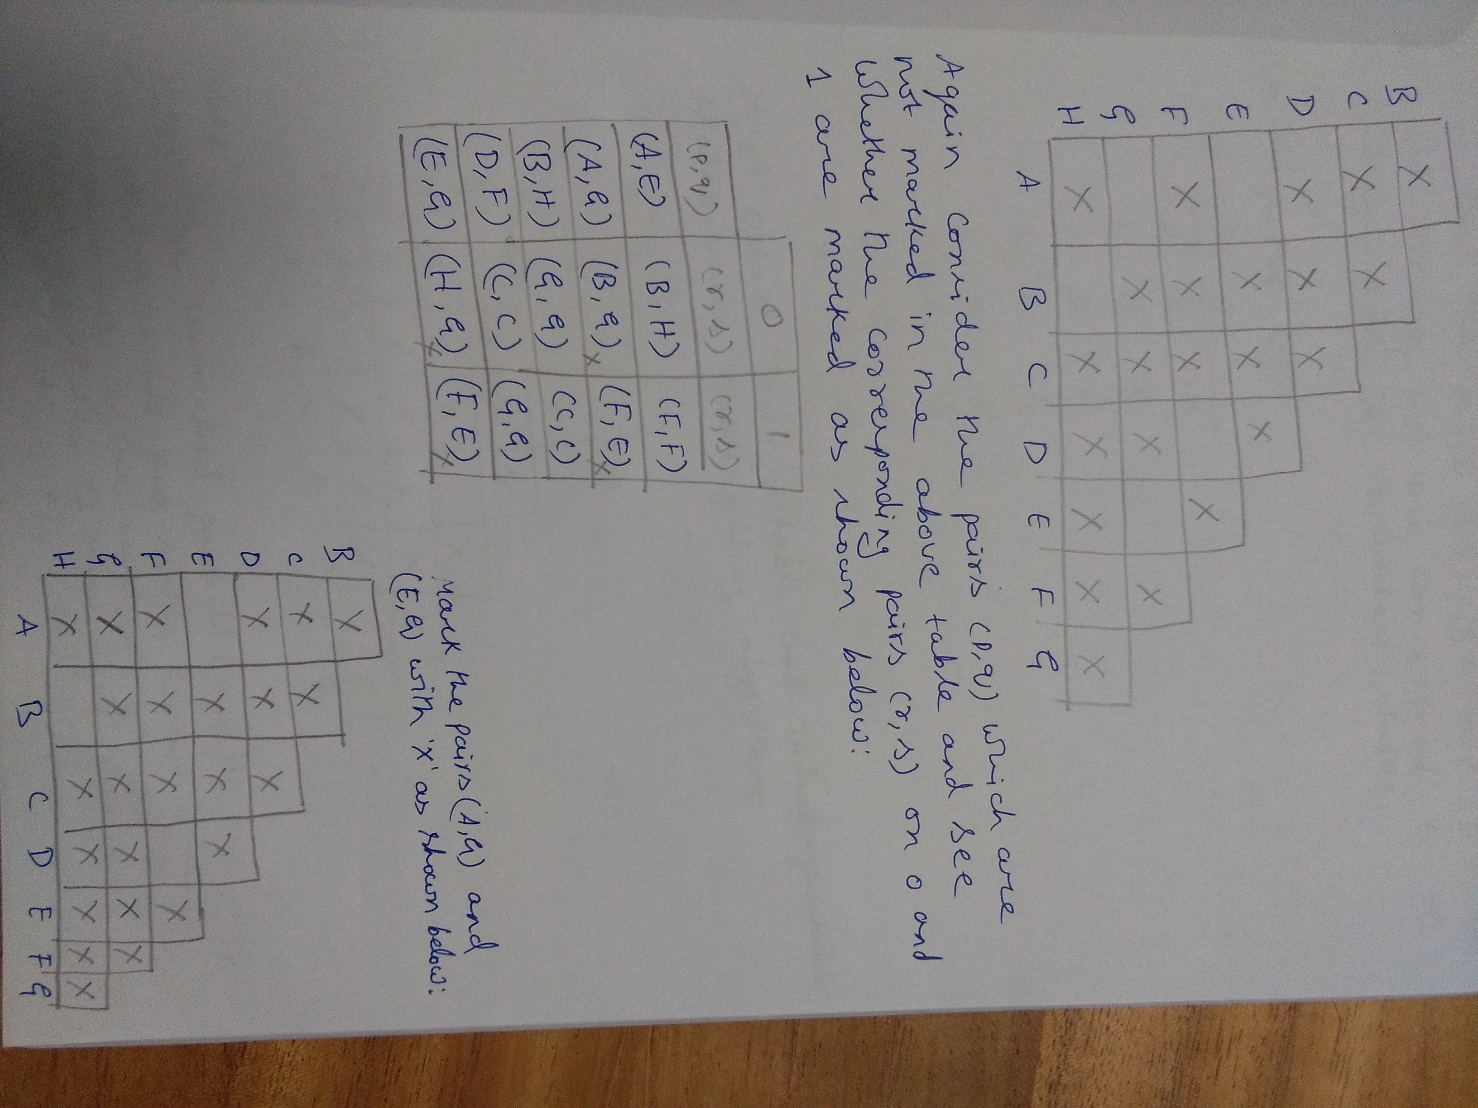 B X
C X X
D X X X
E X X X
F X X X X
G X X X X
H X X X X X X
A B C D E F G
Again consider the pairs (p,q) which are
not marked in the above table and see
whether the corresponding pairs (r,s) on 0 and
1 are marked as shown below:
0 1
(p,q) (r,s) (r,s)
(A,E) (B,H) (F,F)
(A,G) (B,G) X (F,E) X
(B,H) (G,G) (C,C)
(D,F) (C,C) (G,G)
(E,G) (H,G) X (F,E) X
Mark the pairs (A,G) and
(E,G) with 'X' as shown below:
B X
C X X
D X X X
E X X X
F X X X X
G X X X X X X
H X X X X X X
A B C D E F G